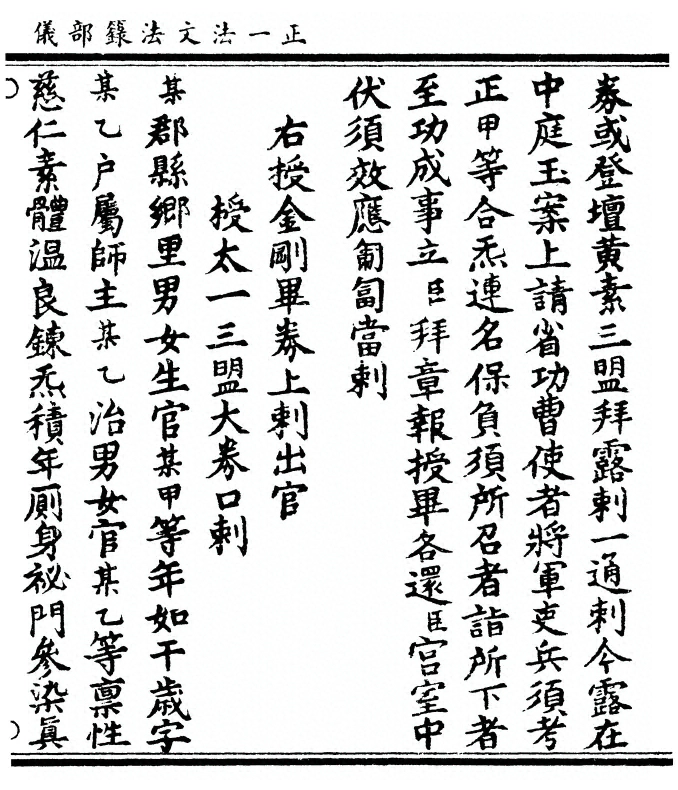 正一法文法籙部儀
券或登壇黄素三盟拜露刾一通刾今露在
中庭玉案上請省功曹使者將軍吏兵須考
正甲等合炁連名保負須所召者詣所下者
至功成事立臣拜章報授畢各還臣宫室中
伏須效應匍匐當刾
右授金剛畢券上刾出官
授太一三盟大券口刾
某郡縣鄉里男女生官某甲等年如干歲字
某乙户屬師主某乙治男女官某乙等禀性
慈仁素體温良錬炁積年厠身袐門參染眞